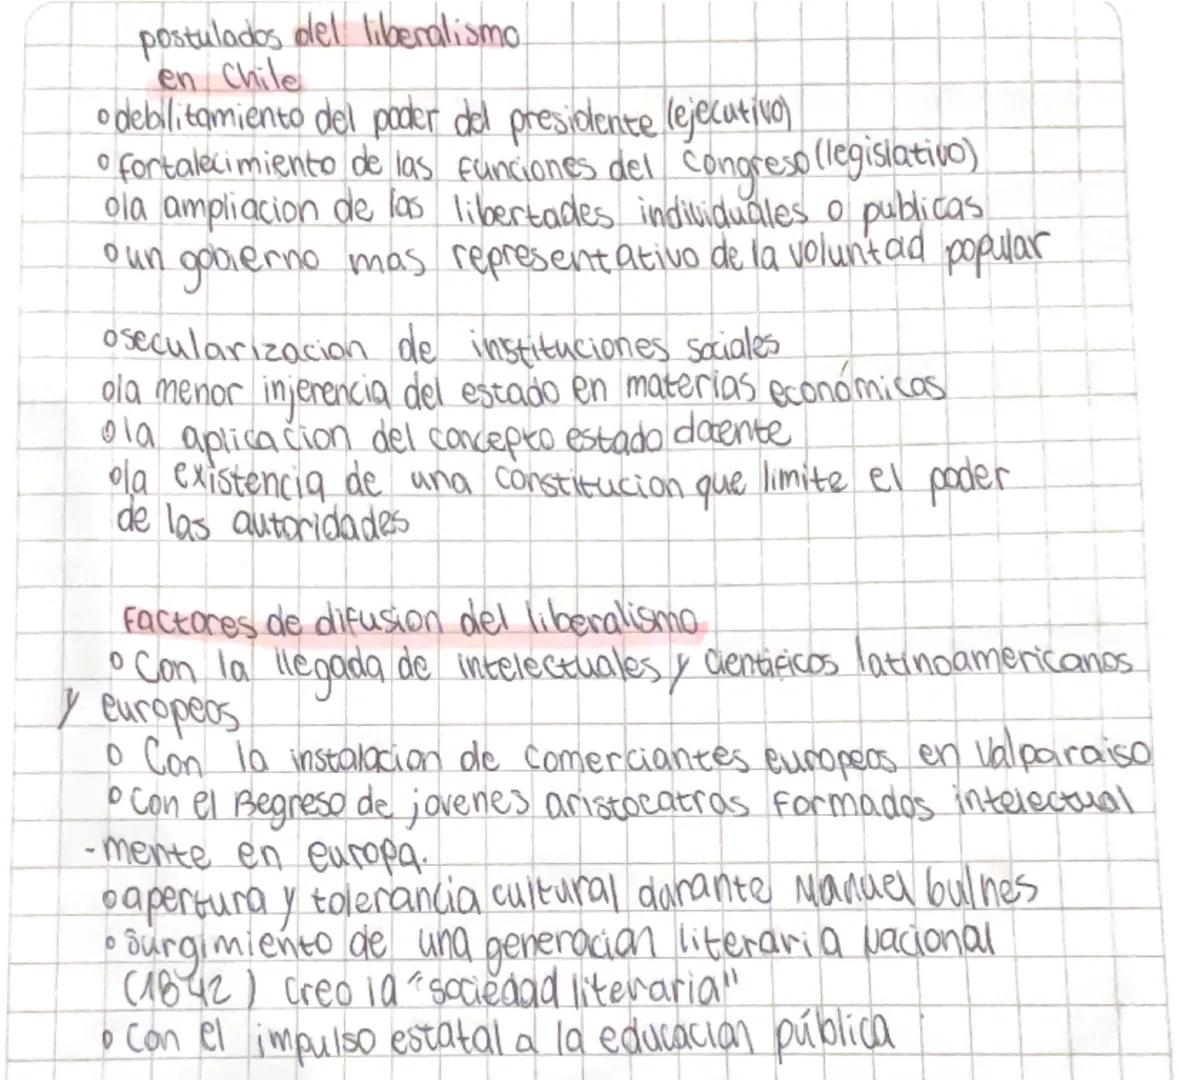 postulados del liberalismo
en Chile
o debilitamiento del poder del presidente (ejecutivo)
o fortalecimiento de las funciones del congreso (legislativo)
o la ampliacion de las libertades individuales o publicas
o un gobierno mas representativo de la voluntad popular
o secularizacion de instituciones sociales
o la menor injerencia del estado en materias económicas
o la aplicacion del concepto estado docente
o la existencia de una constitucion que limite el poder
de las autoridades
Factores de difusion del liberalismo
o Con la llegada de intelectuales y cientificos latinoamericanos
y europeos
o Con la instalacion de comerciantes europeos en Valparaiso
o Con el Regreso de jovenes aristocatras formados intelectual
-mente en europa.
o apertura y tolerancia cultural durante Manuel bulnes
o Surgimiento de una generacion literaria nacional
(1842) creo la "sociedad literaria"
o Con el impulso estatal a la educación pública